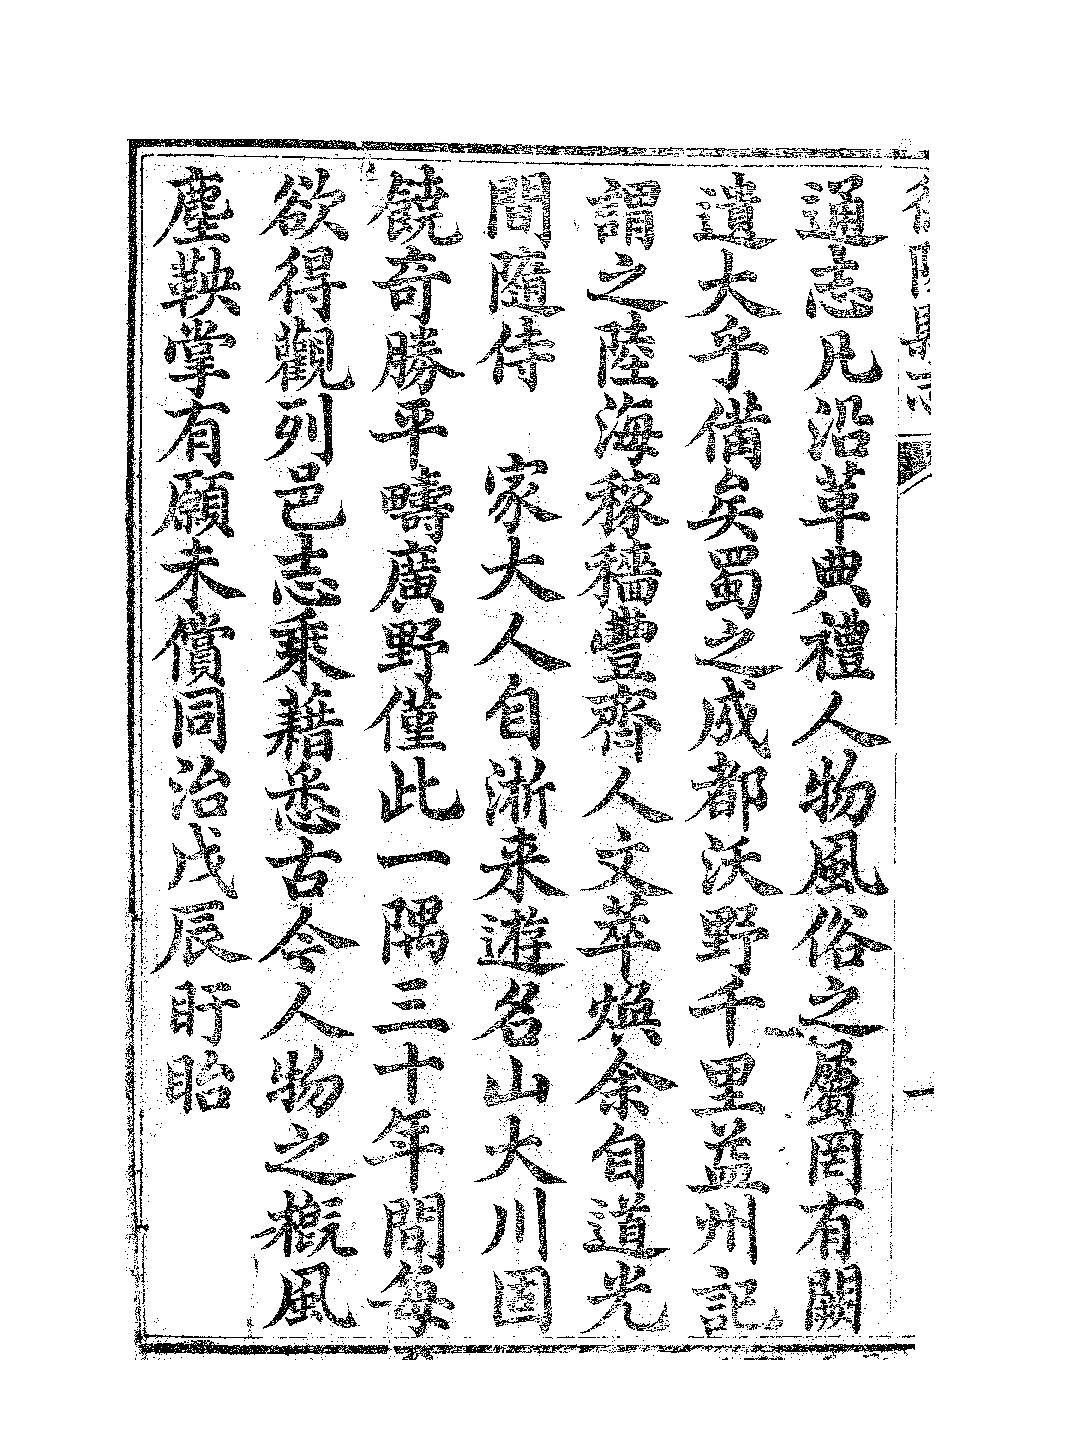 通志凡沿革典禮人物風俗之屬罔有闕
遺大乎備矣蜀之成都沃野千里益州記
謂之陸海稼穡豐齊人文萃煥余自道光
間隨侍　家大人自浙来遊名山大川固
饒奇勝平疇廣野僅此一隅三十年間每
欲得觀列邑志乘藉悉古今人物之槪風
塵鞅掌有願未償同治戊辰盱眙